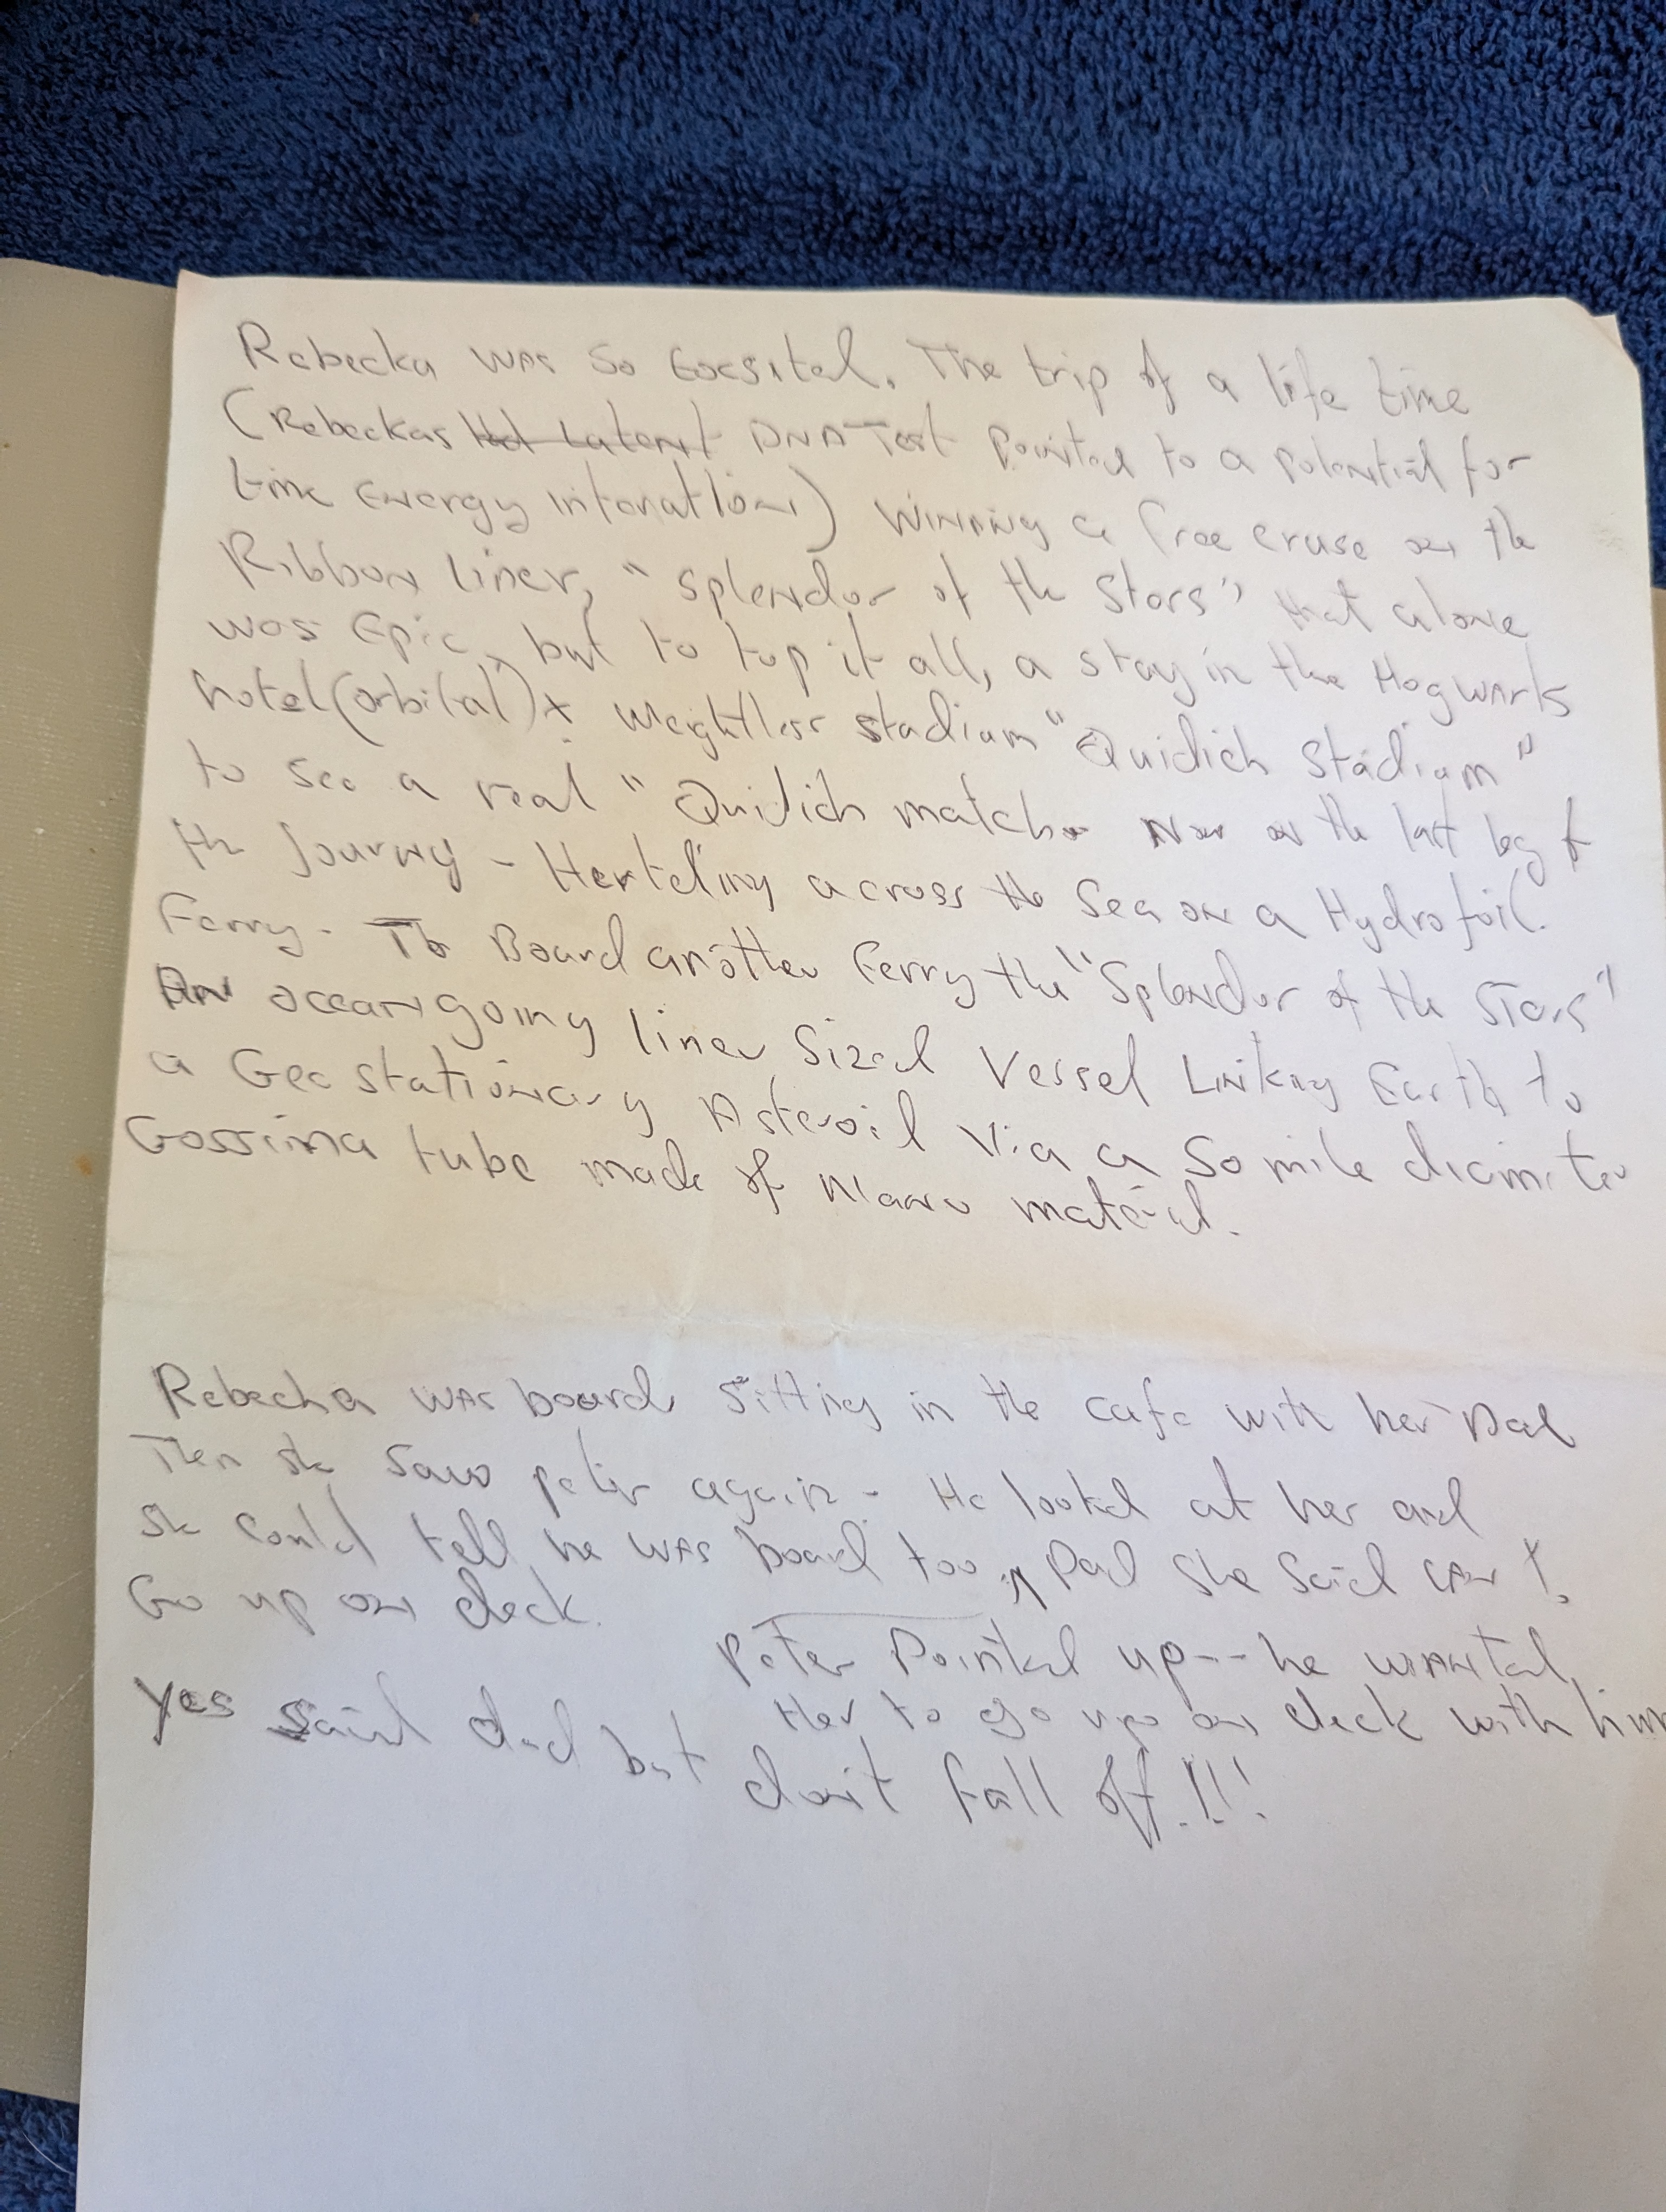 Rebecka was so Excsited. The trip of a life time
(Rebeckas Latent DNA Test Pointed to a potential for
time Energy interations) Winning a free cruse on the
Ribbon Liner, "Splendor of the Stars" that alone
was Epic, but to top it all, a stay in the Hogwarts
hotel (orbital) + weightless stadium "Quidich Stadium"
to see a real "Quidich match. Now on the last leg of
the Journy - Herteling across the Sea on a Hydrofoil.
Ferry. To Board another Ferry the "Splendor of the Stars"
An oceangoing liner Sized Vessel Linking Earth to
a Geo stationary Asteroid Via a 50 mile diamiter
Gossima tube made of Nano material.
Rebecka was board Sitting in the cafe with her Dad
Then she saw peter again - He looked at her and
she could tell he was board too, Dad she Said can I
Go up on deck.
Peter Pointed up -- he wanted
Her to go up on deck with him
Yes Said dad but don't fall off.!!!